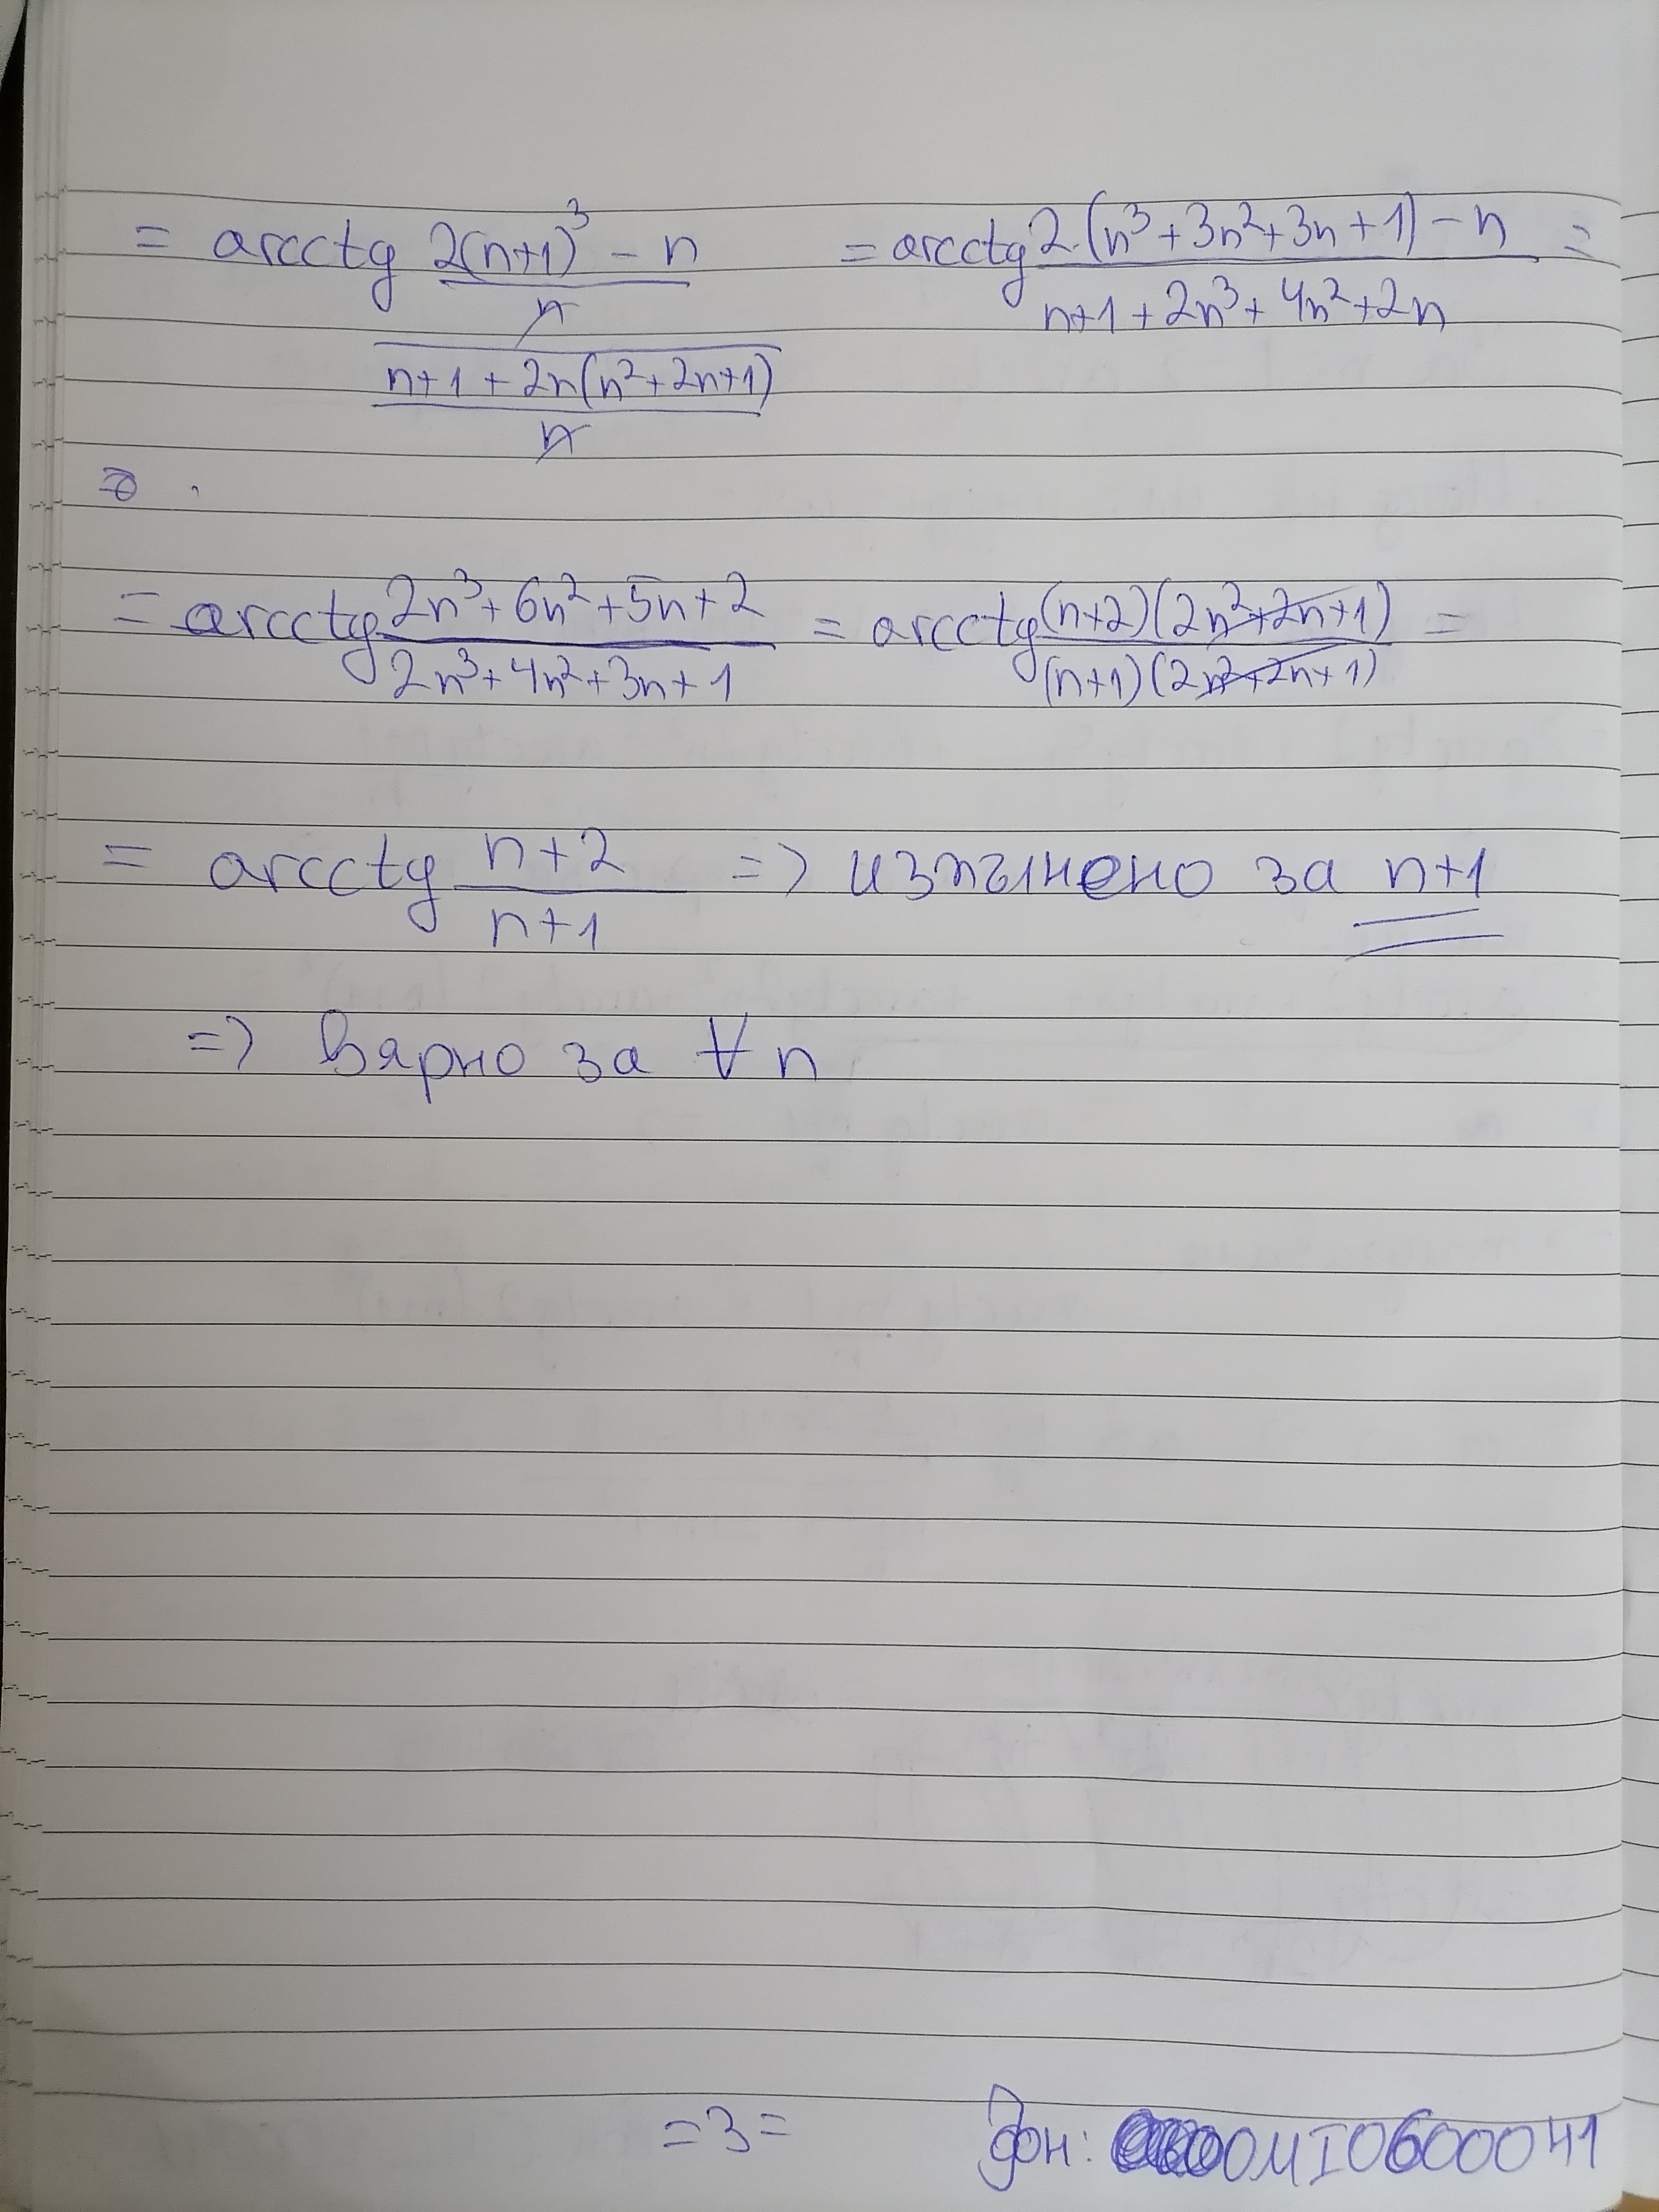 = arcctg (2(n+1)³ - n)/n / (n+1+2n(n²+2n+1))/n = arcctg 2.(n³+3n²+3n+1)-n / n+1+2n³+4n²+2n =
= arcctg 2n³+6n²+5n+2 / 2n³+4n²+3n+1 = arcctg (n+2)(2n²+2n+1) / (n+1)(2n²+2n+1) =
= arcctg n+2 / n+1 => изпълнено за n+1
=> вярно за ∀ n
=3= фон: 0MI0600041